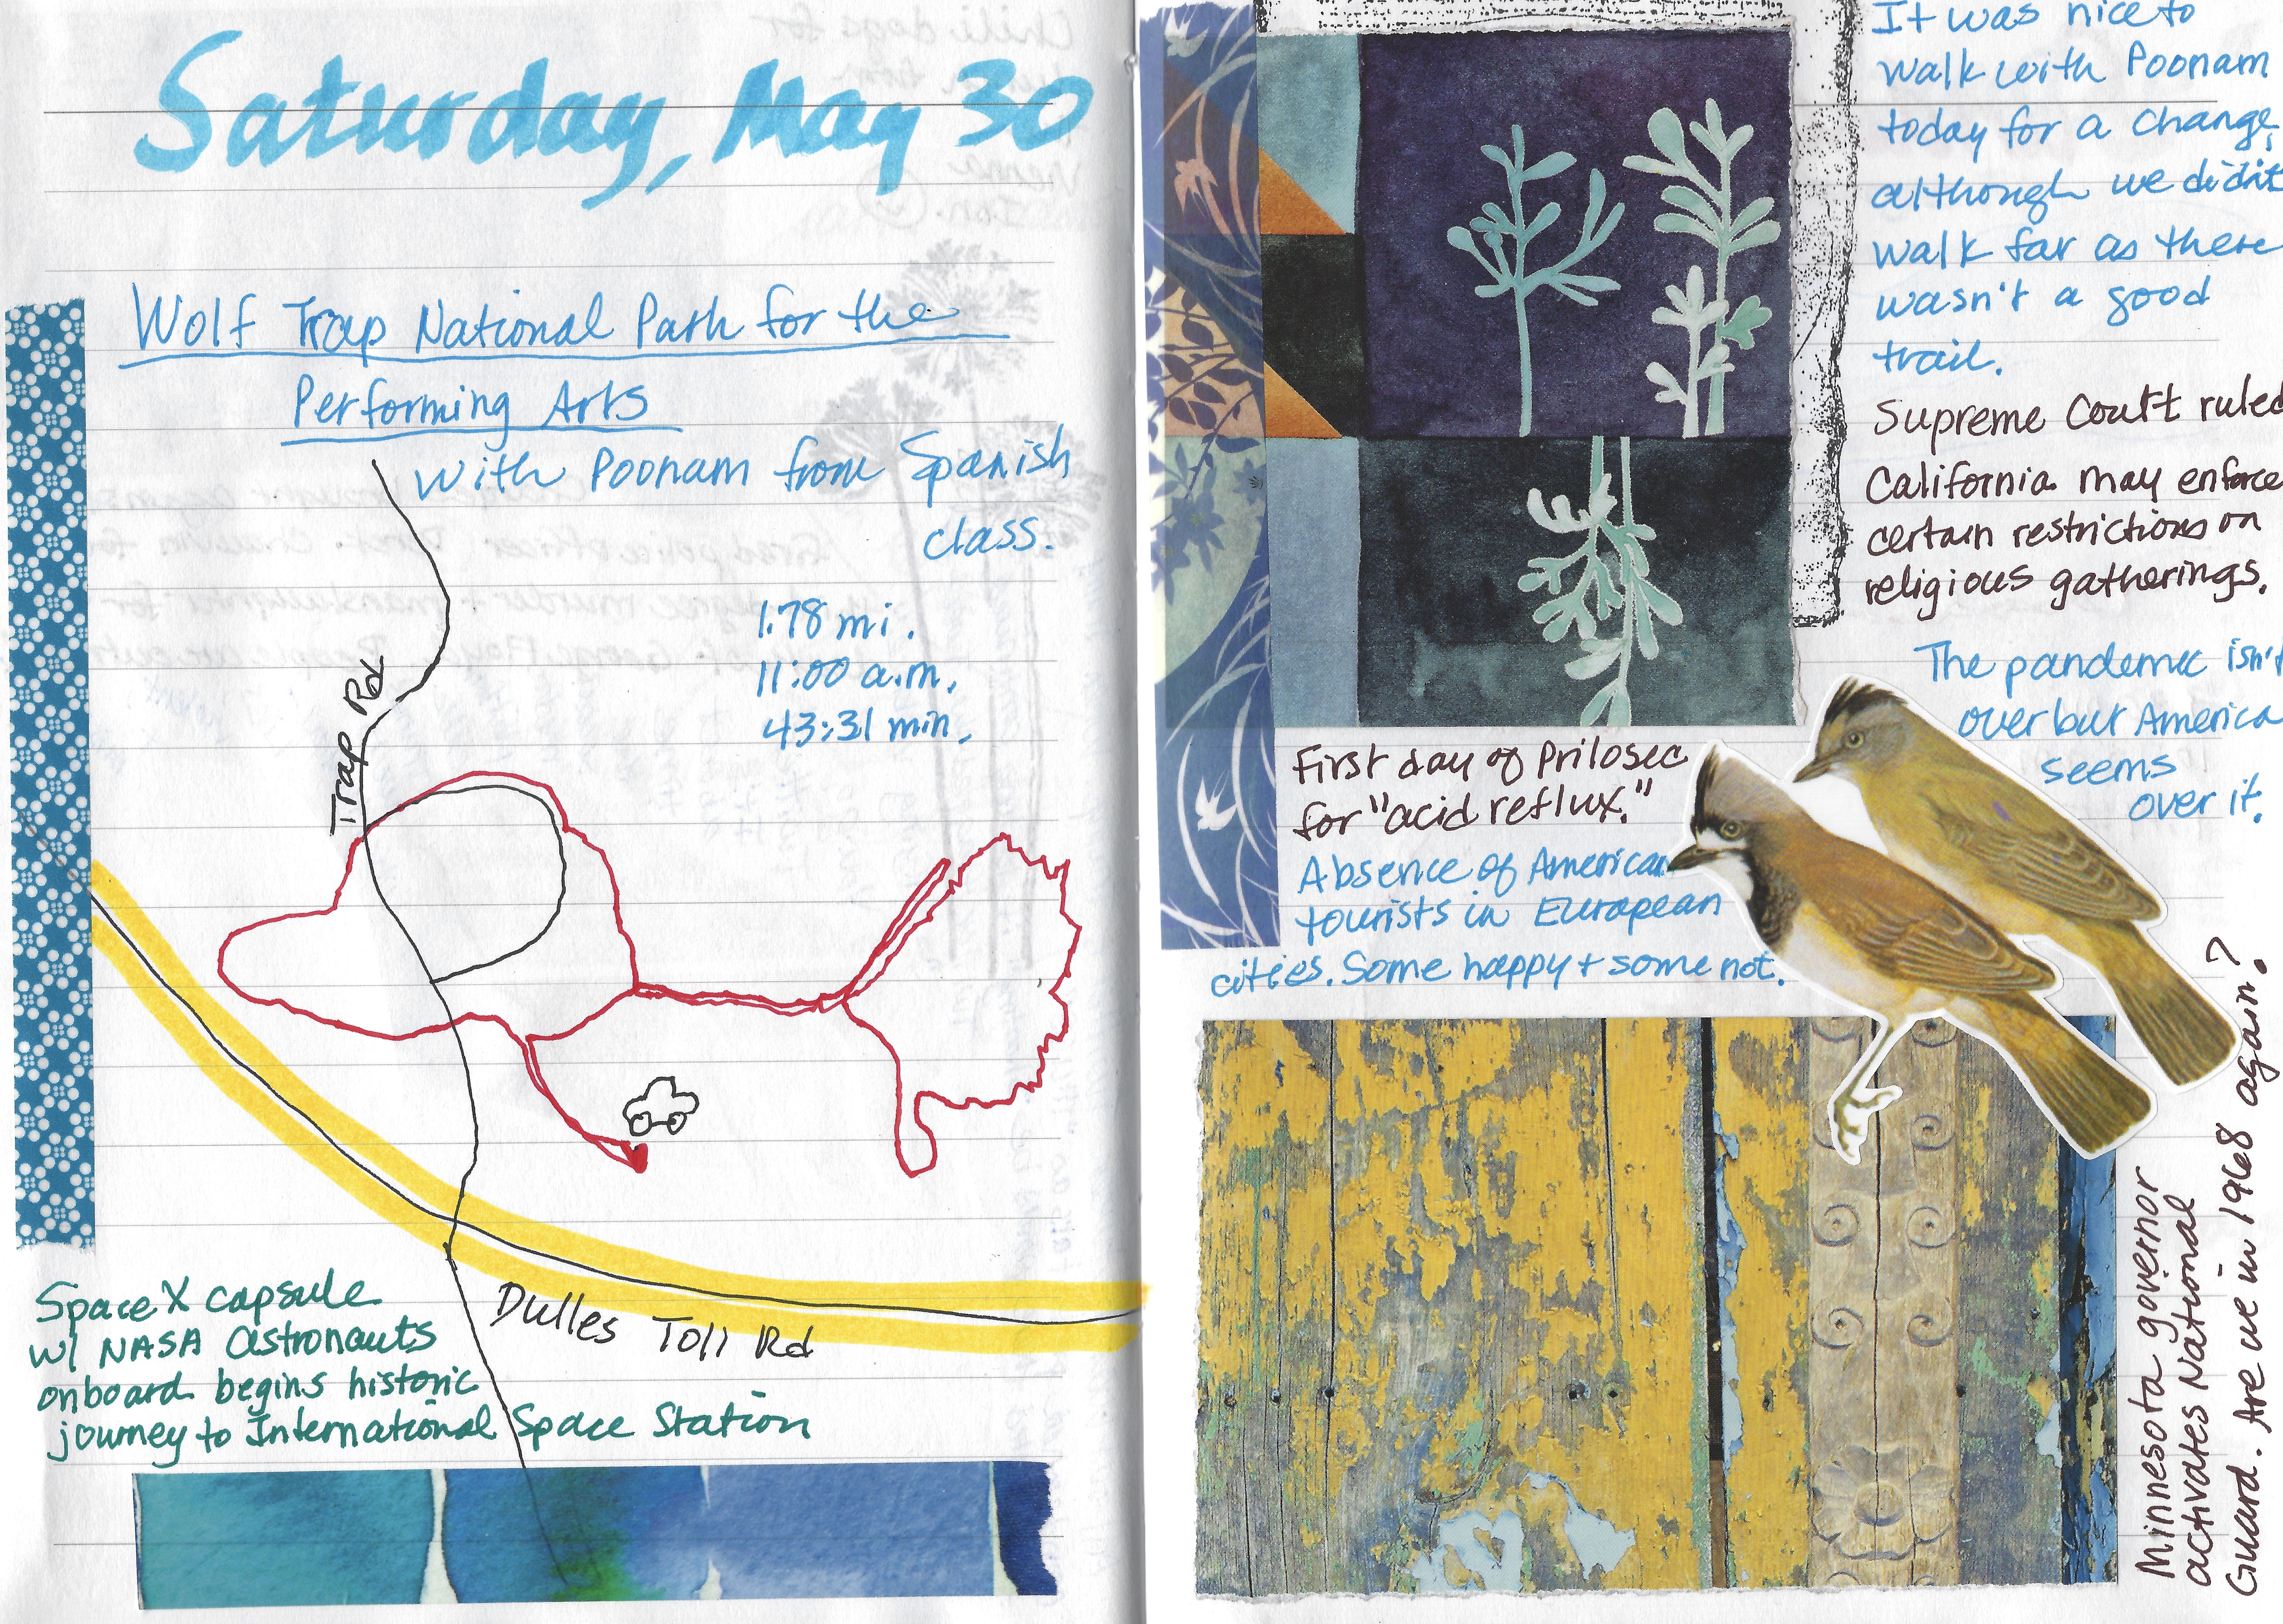 Saturday, May 30
Wolf Trap National Path for the
Performing Arts
with Poonam from Spanish
class.
1.78 mi.
11:00 a.m.
43:31 min.
Trap Rd
Dulles Toll Rd
SpaceX capsule
w/ NASA astronauts
onboard begins historic
journey to International Space Station
It was nice to
walk with Poonam
today for a change,
although we didn't
walk far as there
wasn't a good
trail.
Supreme Court ruled
California may enforce
certain restrictions on
religious gatherings.
The pandemic isn't
over but America
seems
over it.
First day of Prilosec
for "acid reflux."
Absence of American
tourists in European
cities. Some happy + some not.
Minnesota governor
activates National
Guard. Are we in 1968 again?